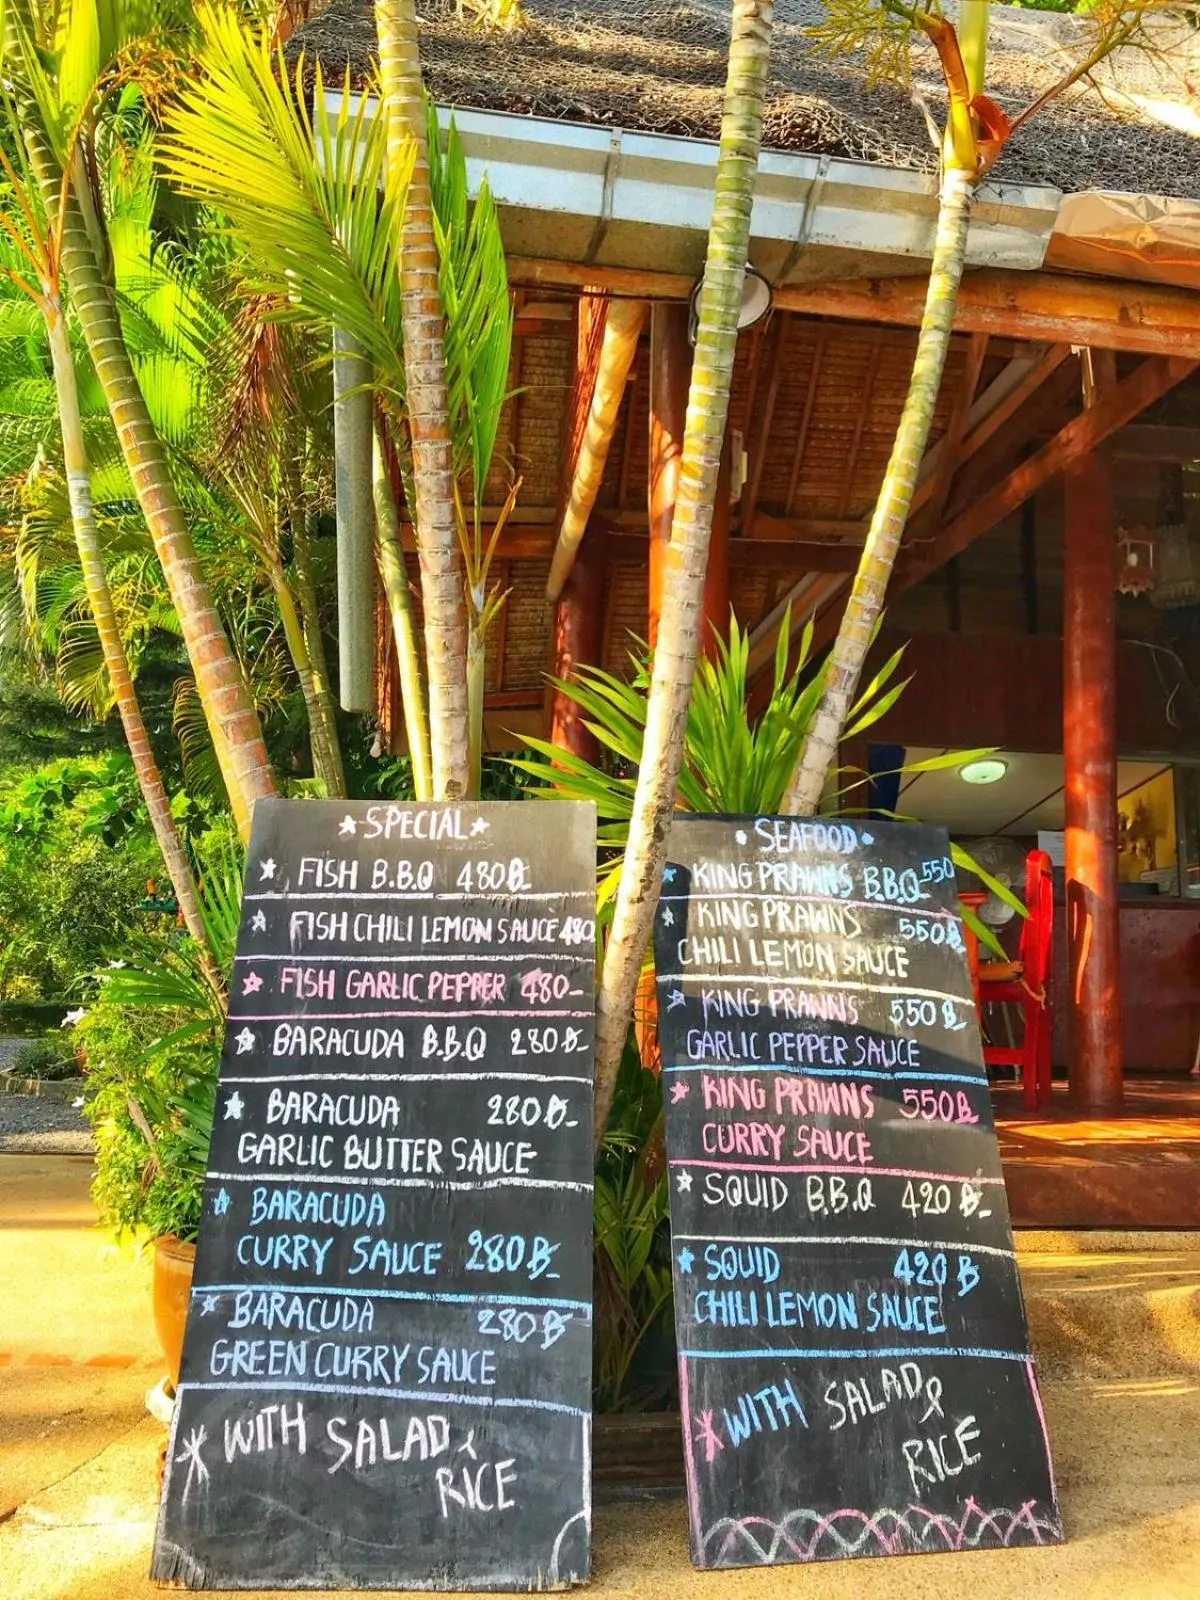 ★SPECIAL★
★ FISH B.B.Q 480฿
★ FISH CHILI LEMON SAUCE 480
★ FISH GARLIC PEPPER 480-
★ BARACUDA B.B.Q 280฿-
★ BARACUDA 280฿-
GARLIC BUTTER SAUCE
★ BARACUDA
CURRY SAUCE 280฿-
★ BARACUDA 280฿
GREEN CURRY SAUCE
* WITH SALAD &
RICE
• SEAFOOD •
★ KING PRAWNS B.B.Q 550
★ KING PRAWNS 550฿
CHILI LEMON SAUCE
★ KING PRAWNS 550฿
GARLIC PEPPER SAUCE
★ KING PRAWNS 550฿
CURRY SAUCE
★ SQUID B.B.Q 420฿-
★ SQUID 420฿
CHILI LEMON SAUCE
* WITH SALAD &
RICE